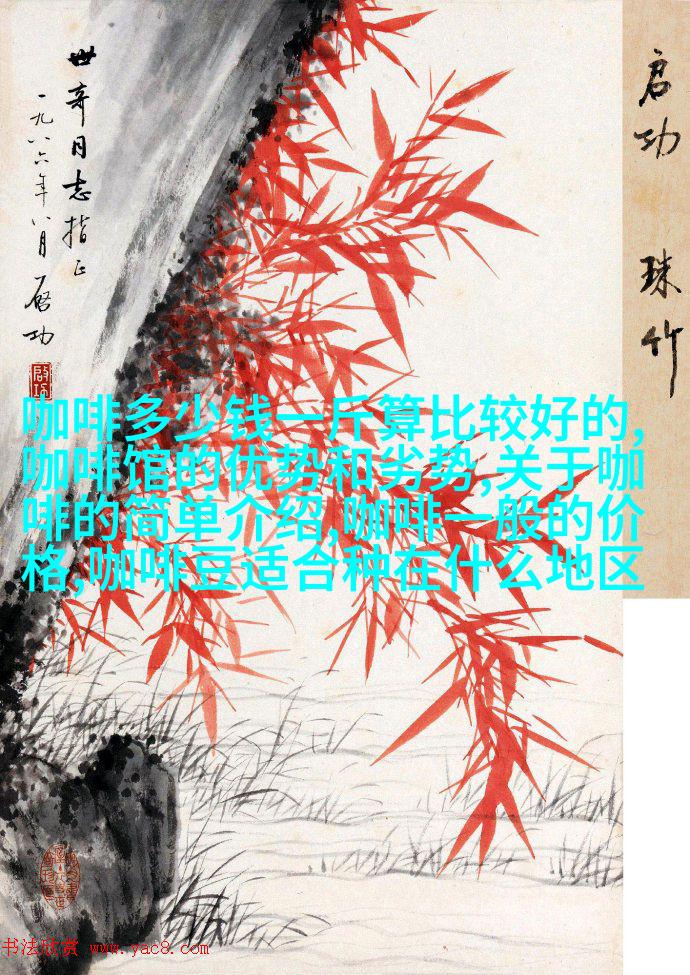 启功 珠竹
世奇同志指正
一九八六年八月 启功
咖啡多少钱一斤算比较好的,
咖啡馆的优势和劣势,关于咖
啡的简单介绍,咖啡一般的价
格,咖啡豆适合种在什么地区
启功
书法欣赏 www.yac8.com